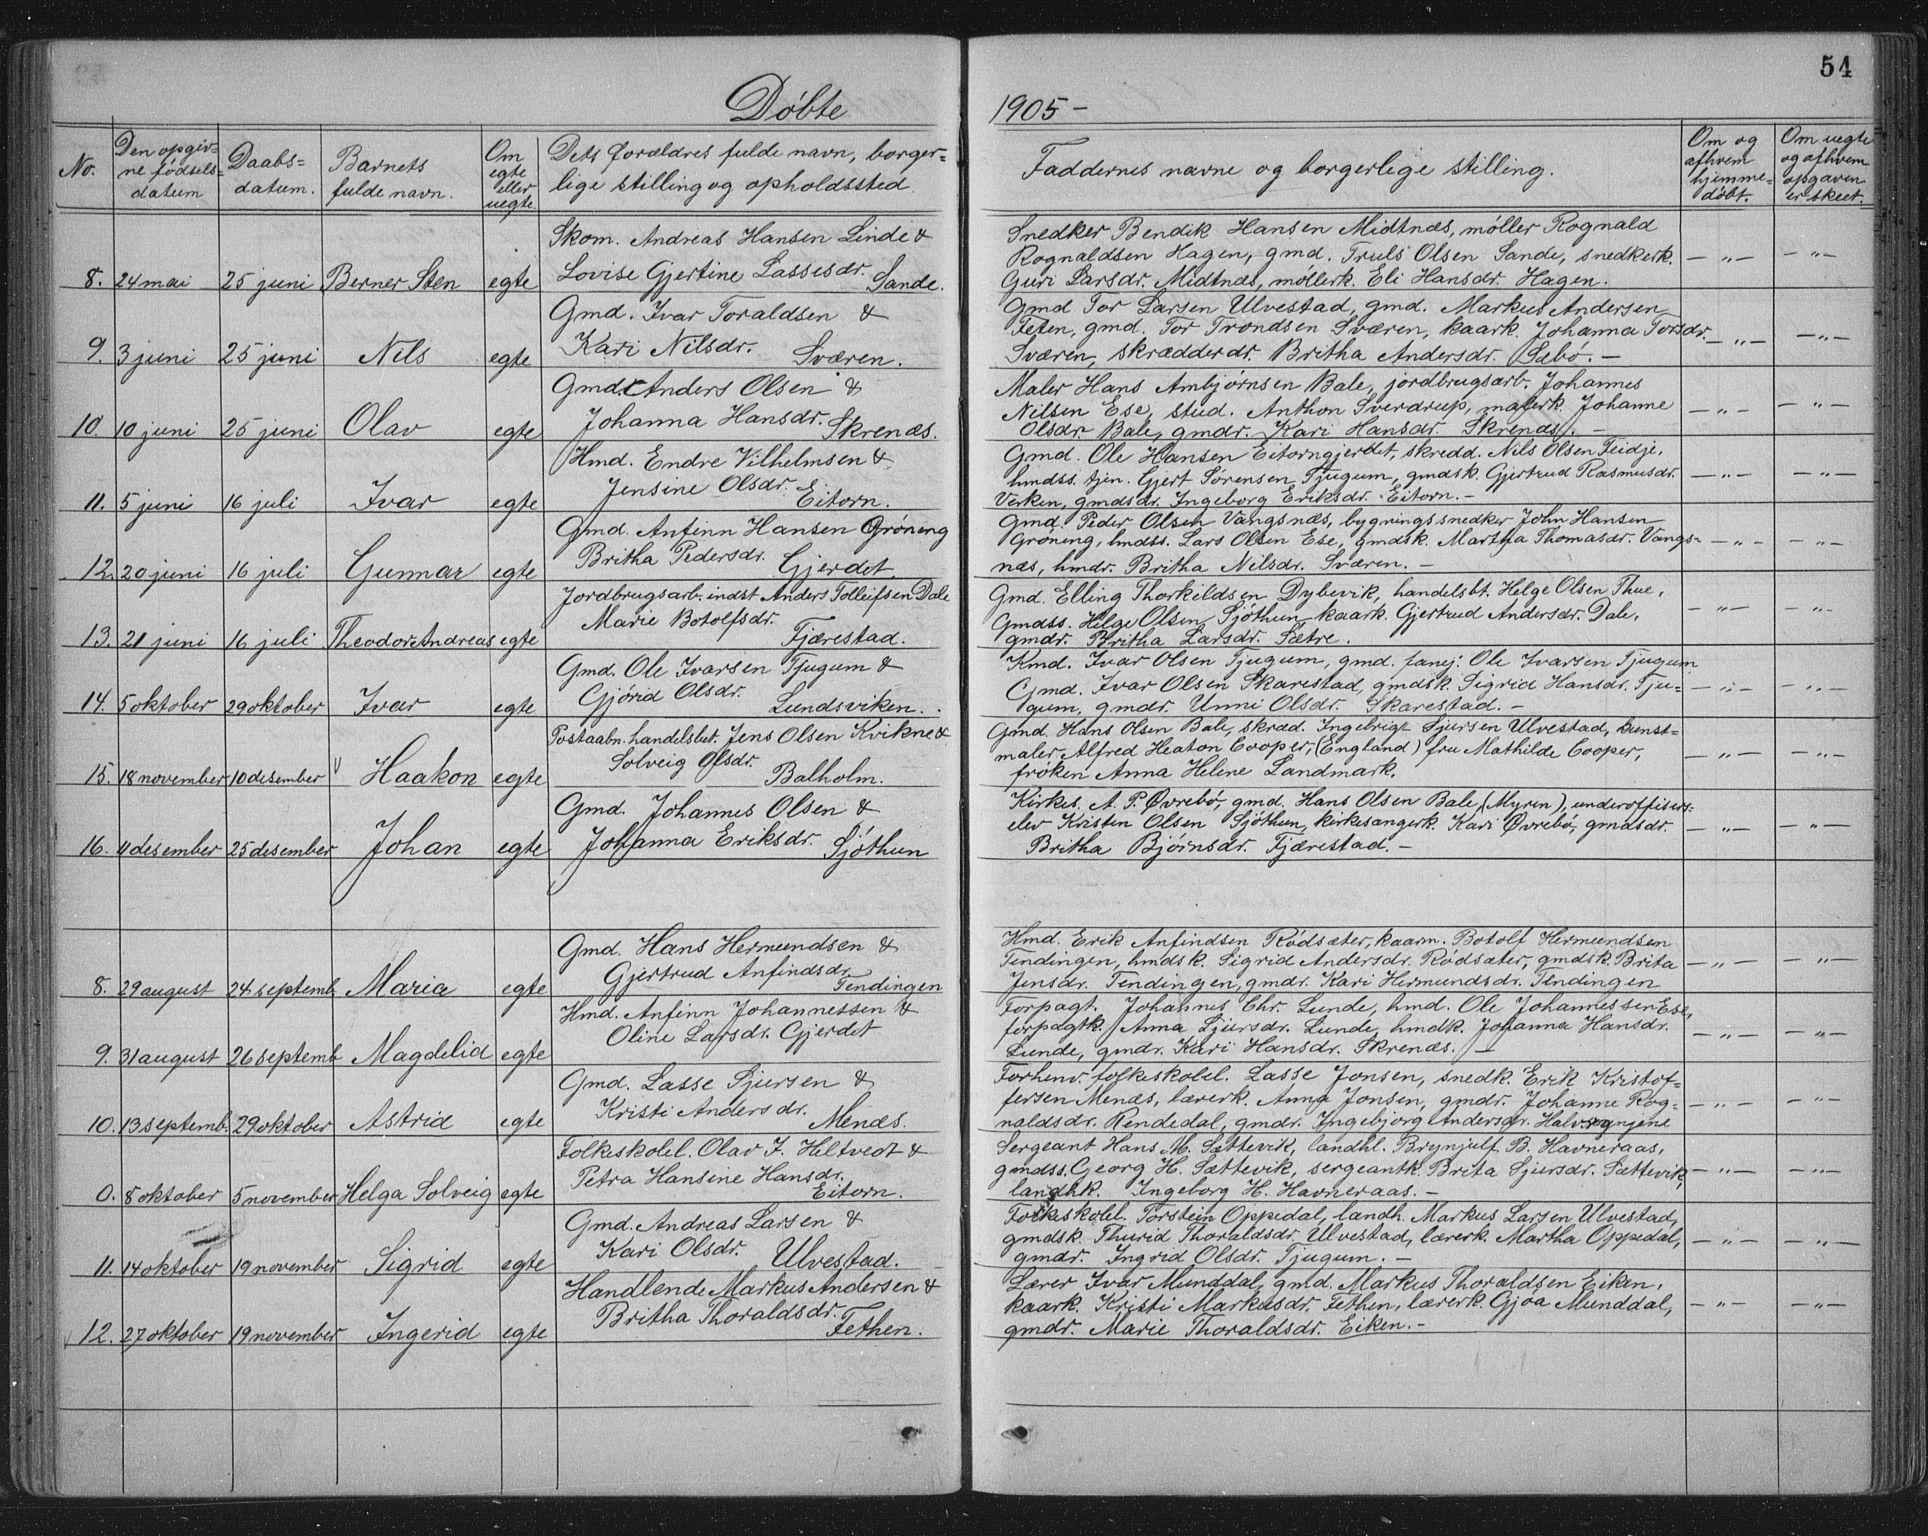 54
Døbte 1905 -
No. Den opgiv= Daabs= Barnets Om Dets forældres fulde navn, borger= Faddernes navne og borgerlige stilling. Om og Om uegte
ne fødsels= datum. fulde navn. egte lige stilling og opholdssted. afhvem og afhvem
datum eller hjemme= opgaven
uegte. døbt. er skeet.
Skom. Andreas Hansen Linde & Snedker Bendik Hansen Midtnæs, møller Rognald
Lovise Gjertine Lassesdr. Rognaldsen Hagen, gmd. Truls Olsen Sande, snedkerk.
8. 24 mai 25 juni Berner Sten egte Sande. Guri Larsdr. Midtnæs, møllerk. Eli Hansdr. Hagen. - „ - - „ -
Gmd. Ivar Toraldsen & Gmd Tor Larsen Ulvestad, gmd. Markus Andersen
Kari Nilsdr. Feten, gmd. Tor Trondsen Sværen, kaark. Johanna Torsdr.
9. 3 juni 25 juni Nils egte Sværen. Sværen, skrædderdr. Britha Andersdr. Sæbø. - - „ - - „ -
Gmd. Anders Olsen & Maler Hans Ambjørnsen Bale, jordbrugsarb. Johannes
Johanna Hansdr. Nilsen Ese, stud. Anthon Sverdrup, malerk. Johanne
10. 10 juni 25 juni Olav egte Skrenæs. Olsdr. Bale, gmdr. Kari Hansdr. Skrenæs. - - „ - - „ -
Hmd. Endre Vilhelmsen & Gmd. Ole Hansen Eitorngjerdet, skredd. Nils Olsen Feidje,
Jensine Olsdr. hmdss. tjen. Gjert Sørensen Tjugum, gmdsk. Gjertrud Rasmusdr.
11. 5 juni 16 juli Ivar egte Eitorn. Verken, gmdsdr. Ingeborg Eriksdr. Eitorn. - - „ - - „ -
Gmd. Anfinn Hansen Grøneng Gmd. Peder Olsen Vangsnæs, bygningssnedker John Hansen
Britha Pedersdr. Grøneng, hmdss. Lars Olsen Ese, gmdsk. Martha Thomasdr. Vangs=
12. 20 juni 16 juli Gunnar egte Gjerdet. næs, hmdr. Britha Nilsdr. Sværen. - - „ - - „ -
Jordbrugsarb. indst Anders Tolleifsen Dale Gmd. Elling Thorkildsen Dybevik, handelsbt. Helge Olsen Thue,
Marie Botolfsdr. Gmdss. Helge Olsen Sjøthun kaark. Gjertrud Andersdr. Dale,
13. 21 juni 16 juli Theodor Andreas egte Fjærestad. gmdr. Britha Larsdr. Sætre. - „ - - „ -
Gmd. Ole Ivarsen Tjugum & Kmd. Ivar Olsen Tjugum, gmd. Ole Ivarsen Tjugum
Gjørid Olsdr. Gmd. Ivar Olsen Skarestad, gmdsk. Sigrid Hansdr. Tju=
14. 5 oktober 29 oktober Ivar egte Lundsviken. gum, gmdr. Unni Olsdr. Skarestad. - - „ - - „ -
Postaabn. handelsbet. Jens Olsen Kvikne & Gmd. Hans Olsen Bale, skræd. Ingebrigt Sjursen Ulvestad, kunst=
Solveig Olsdr. maler, Alfred Heaton Cooper, (England) fru Mathilde Cooper,
15. 18 november 10 desember V Haakon egte Balholm. frøken Anna Helene Landmark. - „ - - „ -
Gmd. Johannes Olsen & Kirkes. A. P. Øvrebø, gmd. Hans Olsen Bale (Myren), underoffisers=
Johanna Eriksdr. elev Kristen Olsen Sjøthun, kirkesangerk. Kari Øvrebø, gmdsdr.
16. 4 desember 25 desember Johan egte Sjøthun Britha Bjørnsdr. Fjærestad. - - „ - - „ -
Gmd. Hans Hermundsen & Hmd. Erik Anfindsen Rødsæter, kaarm. Botolf Hermundsen
Gjertrud Anfindsdr. Tendingen, hmdsk. Sigrid Andersdr. Rødsæter, gmdsk. Brita
8. 29 august 24 septemb. Maria egte Tendingen Jensdr. Tendingen, gmdr. Kari Hermundsdr. Tendingen - „ - - „ -
Hmd. Anfinn Johannessen & Forpagt. Johannes Chr. Lunde, hmd. Ole Johannessen Ese,
Oline Larsdr. Gjerdet forpagtk. Anna Sjursdr. Lunde, hmdk. Johanna Hansdr.
9. 31 august 26 septemb Magdelid egte Lunde, gmdr. Kari Hansdr. Skrenæs. - - „ - - „ -
Gmd. Lasse Sjursen & Forhenv. folkeskolel. Lasse Jonsen, snedk. Erik Kristof=
Kristi Andersdr. fersen Menæs, lærerk. Anna Jonsen, gmdr. Johanne Rog=
10. 13 septemb. 29 oktober Astrid egte Menæs. naldsdr. Rendedal, gmdr. Ingebjørg Andersdr. - „ - - „ -
Folkeskolel. Olav J. Heltvedt & Sergeant Hans M. Sættevik, landhl. Brynjulf B. Havneraas,
Petra Hansine Hansdr. gmdss. Georg H. Sættevik, sergeantk. Brita Sjursdr. Sættevik,
0. 8 oktober 5 november Helga Solveig egte Eitorn. landhk. Ingeborg H. Havneraas. - - „ - - „ -
Gmd. Andreas Larsen & Folkeskolel. Torstein Oppedal, landh. Markus Larsen Ulvestad,
Kari Olsdr. gmdsk. Thurid Thoraldsdr. Ulvestad, lærerk. Martha Oppedal,
11. 14 oktober 19 november Sigrid egte Ulvestad. gmdr. Ingrid Olsdr. Tjugum. - - „ - - „ -
Handlende Markus Andersen & Lærer Ivar Munddal, gmd. Markus Thoraldsen Eiken,
Britha Thoraldsdr. kaark. Kristi Markusdr. Fethen, lærerk. Gjøa Munddal,
12. 27 oktober 19 november Ingerid egte Fethen. gmdr. Marie Thoraldsdr. Eiken. - - „ - - „ -